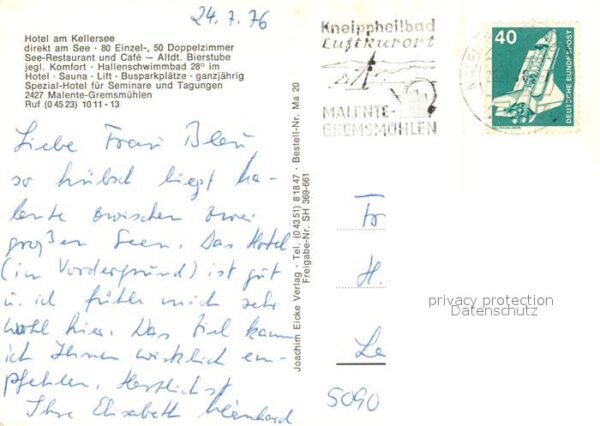 24.7.76
Hotel am Kellersee
direkt am See · 80 Einzel-, 50 Doppelzimmer
See-Restaurant und Café – Altdt. Bierstube
jegl. Komfort · Hallenschwimmbad 28° im
Hotel · Sauna · Lift · Busparkplätze · ganzjährig
Spezial-Hotel für Seminare und Tagungen
2427 Malente-Gremsmühlen
Ruf (0 45 23) 10 11 - 13
Liebe Frau Blau,
so hübsch liegt Ma-
lente zwischen zwei
großen Seen. Das Hotel
(im Vordergrund) ist gut
u. ich fühle mich sehr
wohl hier. Das Ziel kann
ich Ihnen wirklich em-
pfehlen. Herzlichst
Ihre Elisabeth
Joachim Eicke Verlag · Tel. (0 43 51) 8 18 47 · Bestell-Nr. Ma 20
Freigabe-Nr. SH 369-661
Kneippheilbad
Luftkurort
MALENTE-
GREMSMÜHLEN
40
DEUTSCHE BUNDESPOST
Fr
H.
privacy protection
Datenschutz
Le
5090